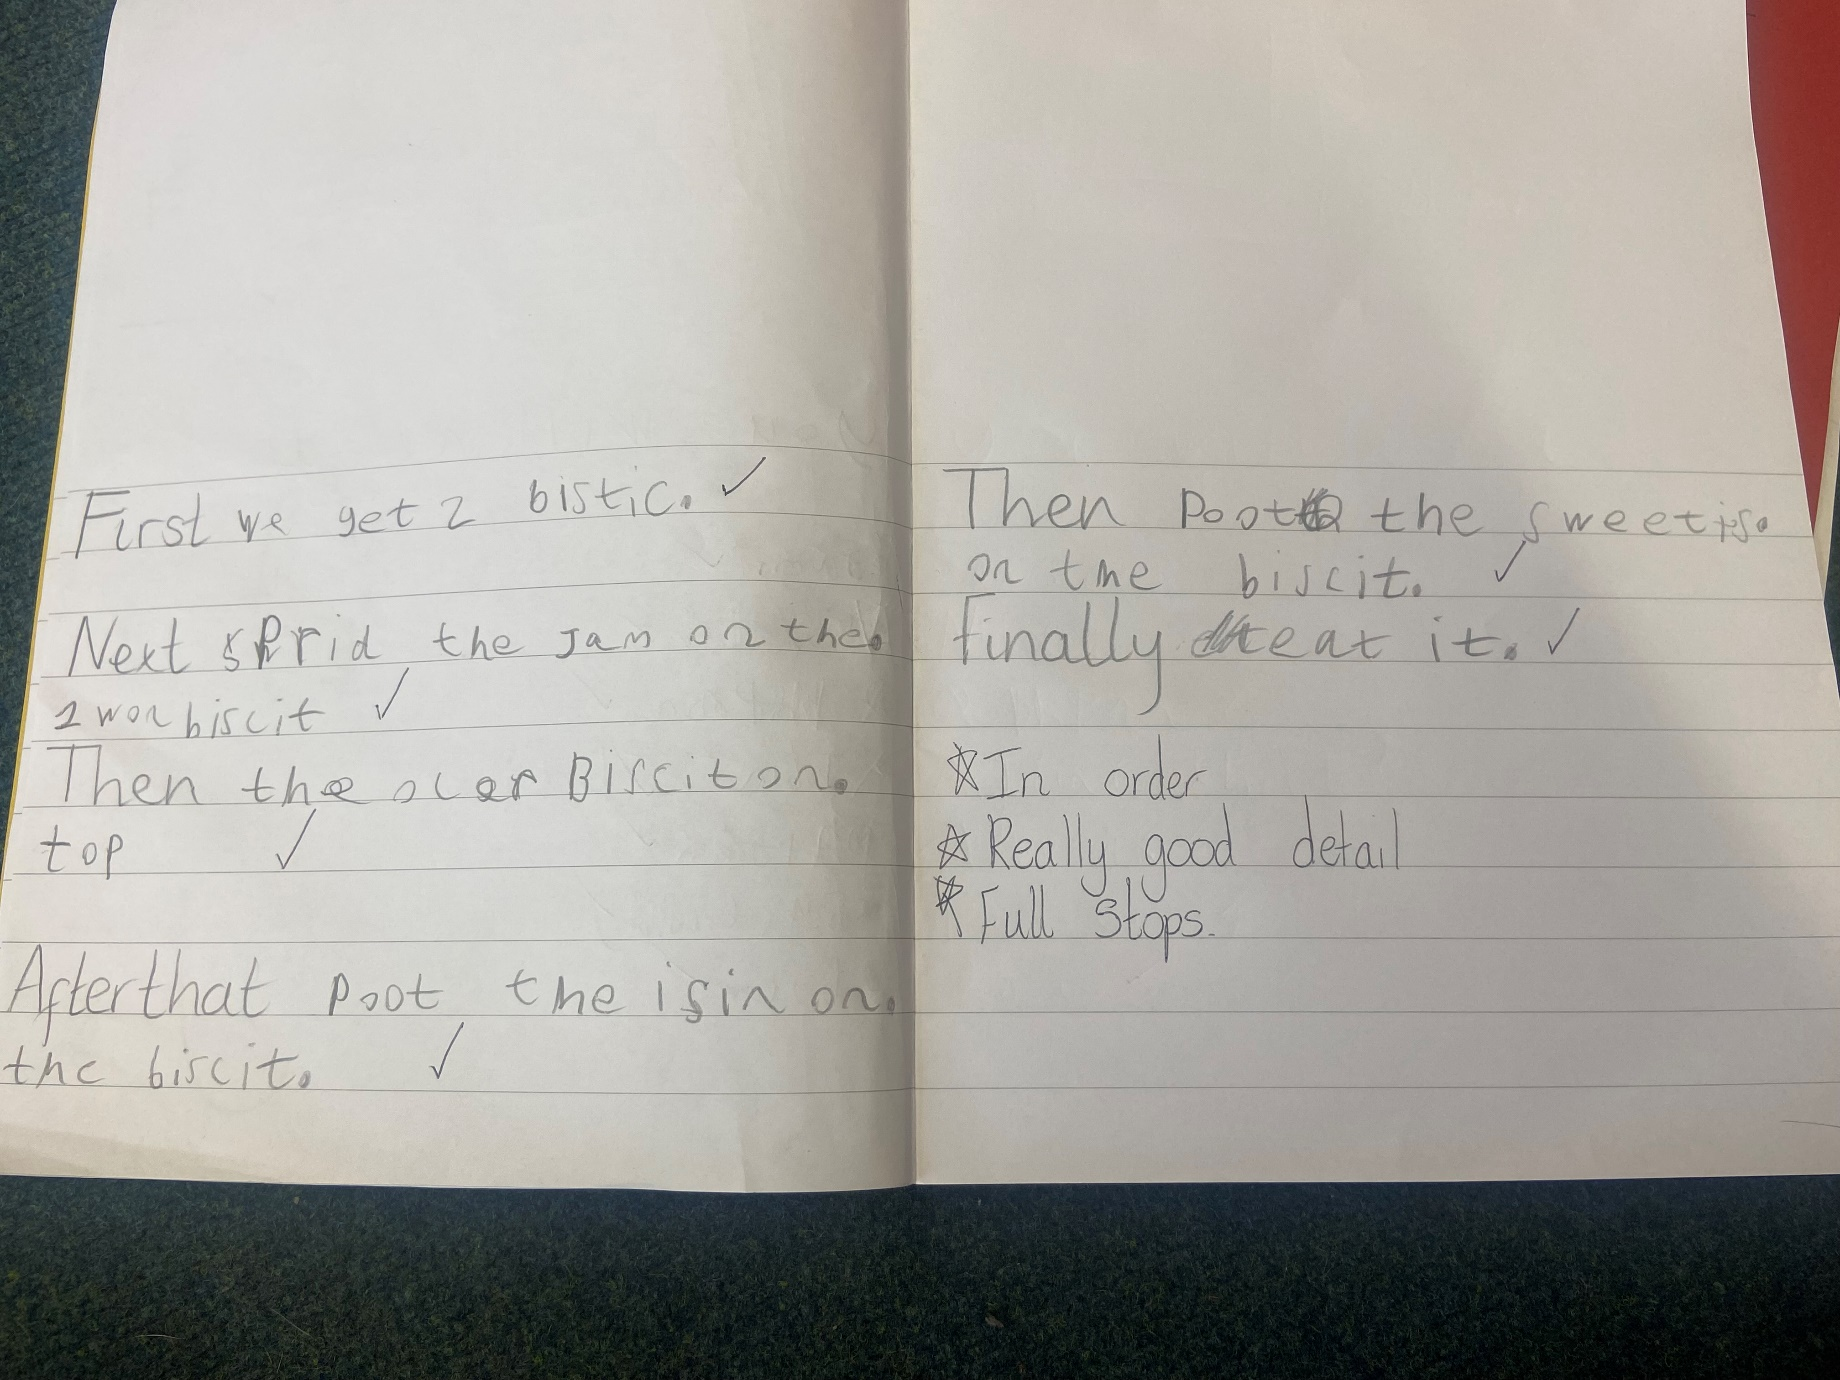 First we get 2 bistic. ✓
Next sprid the jam on the.
1 won biscit ✓
Then the ocer Biscit on.
top ✓
After that poot the isin on.
the biscit. ✓
Then poot the sweetis.
on the biscit. ✓
Finally eat it. ✓
☆ In order
☆ Really good detail
☆ Full stops.